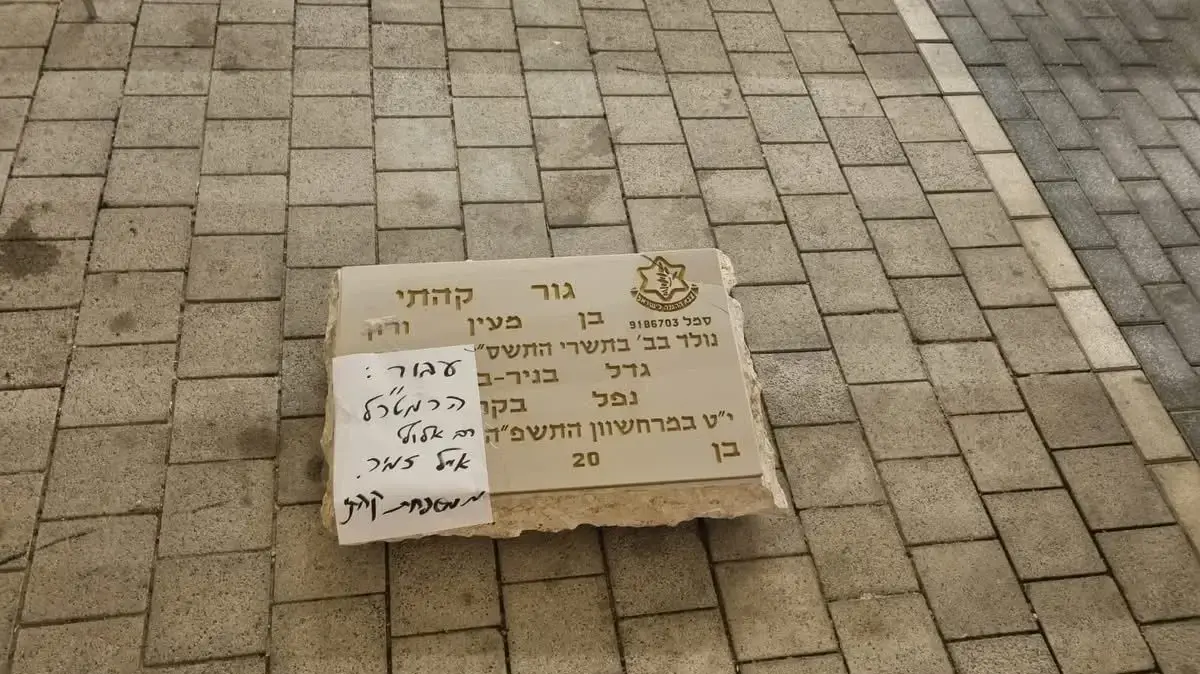 גור קהתי
צבא הגנה לישראל
סמל 9186703
בן מעין ורון
נולד בב' בתשרי התשס"
גדל בניר-ב
נפל בקר
י"ט במרחשוון התשפ"ה
בן 20
עבור:
הרמטכ"ל
רב אלוף
אייל זמיר.
ממשפחת קהתי